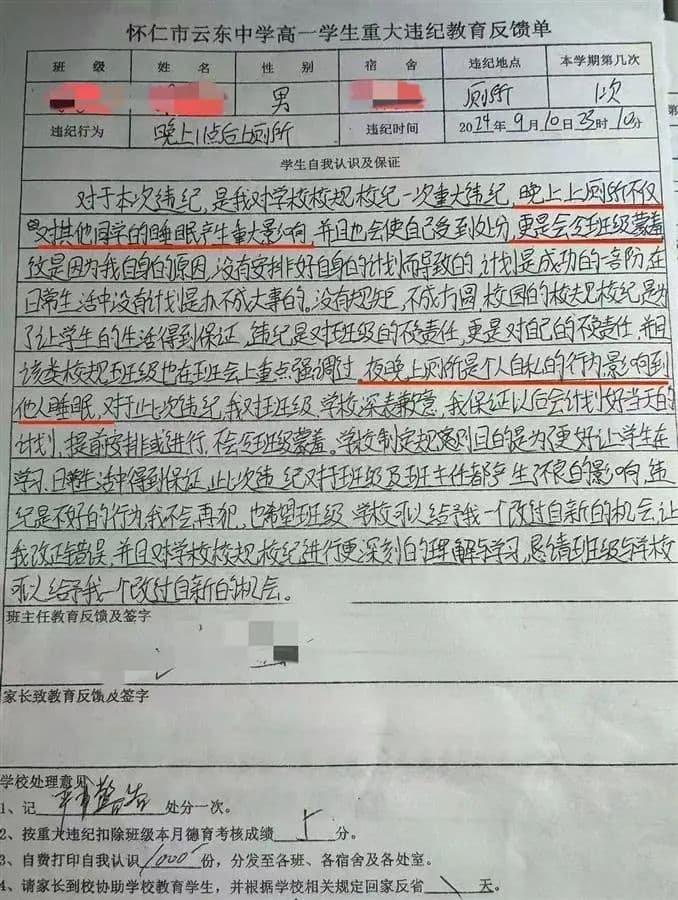 怀仁市云东中学高一学生重大违纪教育反馈单
班 级 姓 名 性 别 宿 舍 违纪地点 本学期第几次
男 厕所 1次
违纪行为 晚上11点后上厕所 违纪时间 2024年9月10日23时10分
学生自我认识及保证
对于本次违纪,是我对学校校规校纪一次重大违纪,晚上上厕所不仅
对其他同学的睡眠产生重大影响,并且也会使自己受到处分,更是会令班级蒙羞
这是因为我自身的原因,没有安排好自身的计划而导致的,计划是成功的一部分,在
日常生活中没有计划是办不成大事的。没有规矩,不成方圆,校园的校规校纪是为
了让学生的生活得到保证,违纪是对班级的不负责任,更是对自己的不负责任,并且
该类校规班级也在班会上重点强调过,夜晚上厕所是个人自私的行为影响到
他人睡眠,对于此次违纪,我对班级、学校深表歉意,我保证以后会计划好当天的
计划,提前安排或进行,不会令班级蒙羞。学校制定规则目的是为了更好让学生在
学习、日常生活中得到保证,此次违纪对班级及班主任都产生了不良的影响,违
纪是不好的行为我不会再犯,也希望班级、学校可以给予我一个改过自新的机会,让
我改正错误,并且对学校校规校纪进行更深刻的理解与学习,恳请班级与学校
可以给予我一个改过自新的机会。
班主任教育反馈及签字
家长致教育反馈及签字
学校处理意见
1、记 警告 处分一次。
2、按重大违纪扣除班级本月德育考核成绩 分。
3、自费打印自我认识 1000 份,分发至各班、各宿舍及各处室。
4、请家长到校协助学校教育学生,并根据学校相关规定回家反省 天。